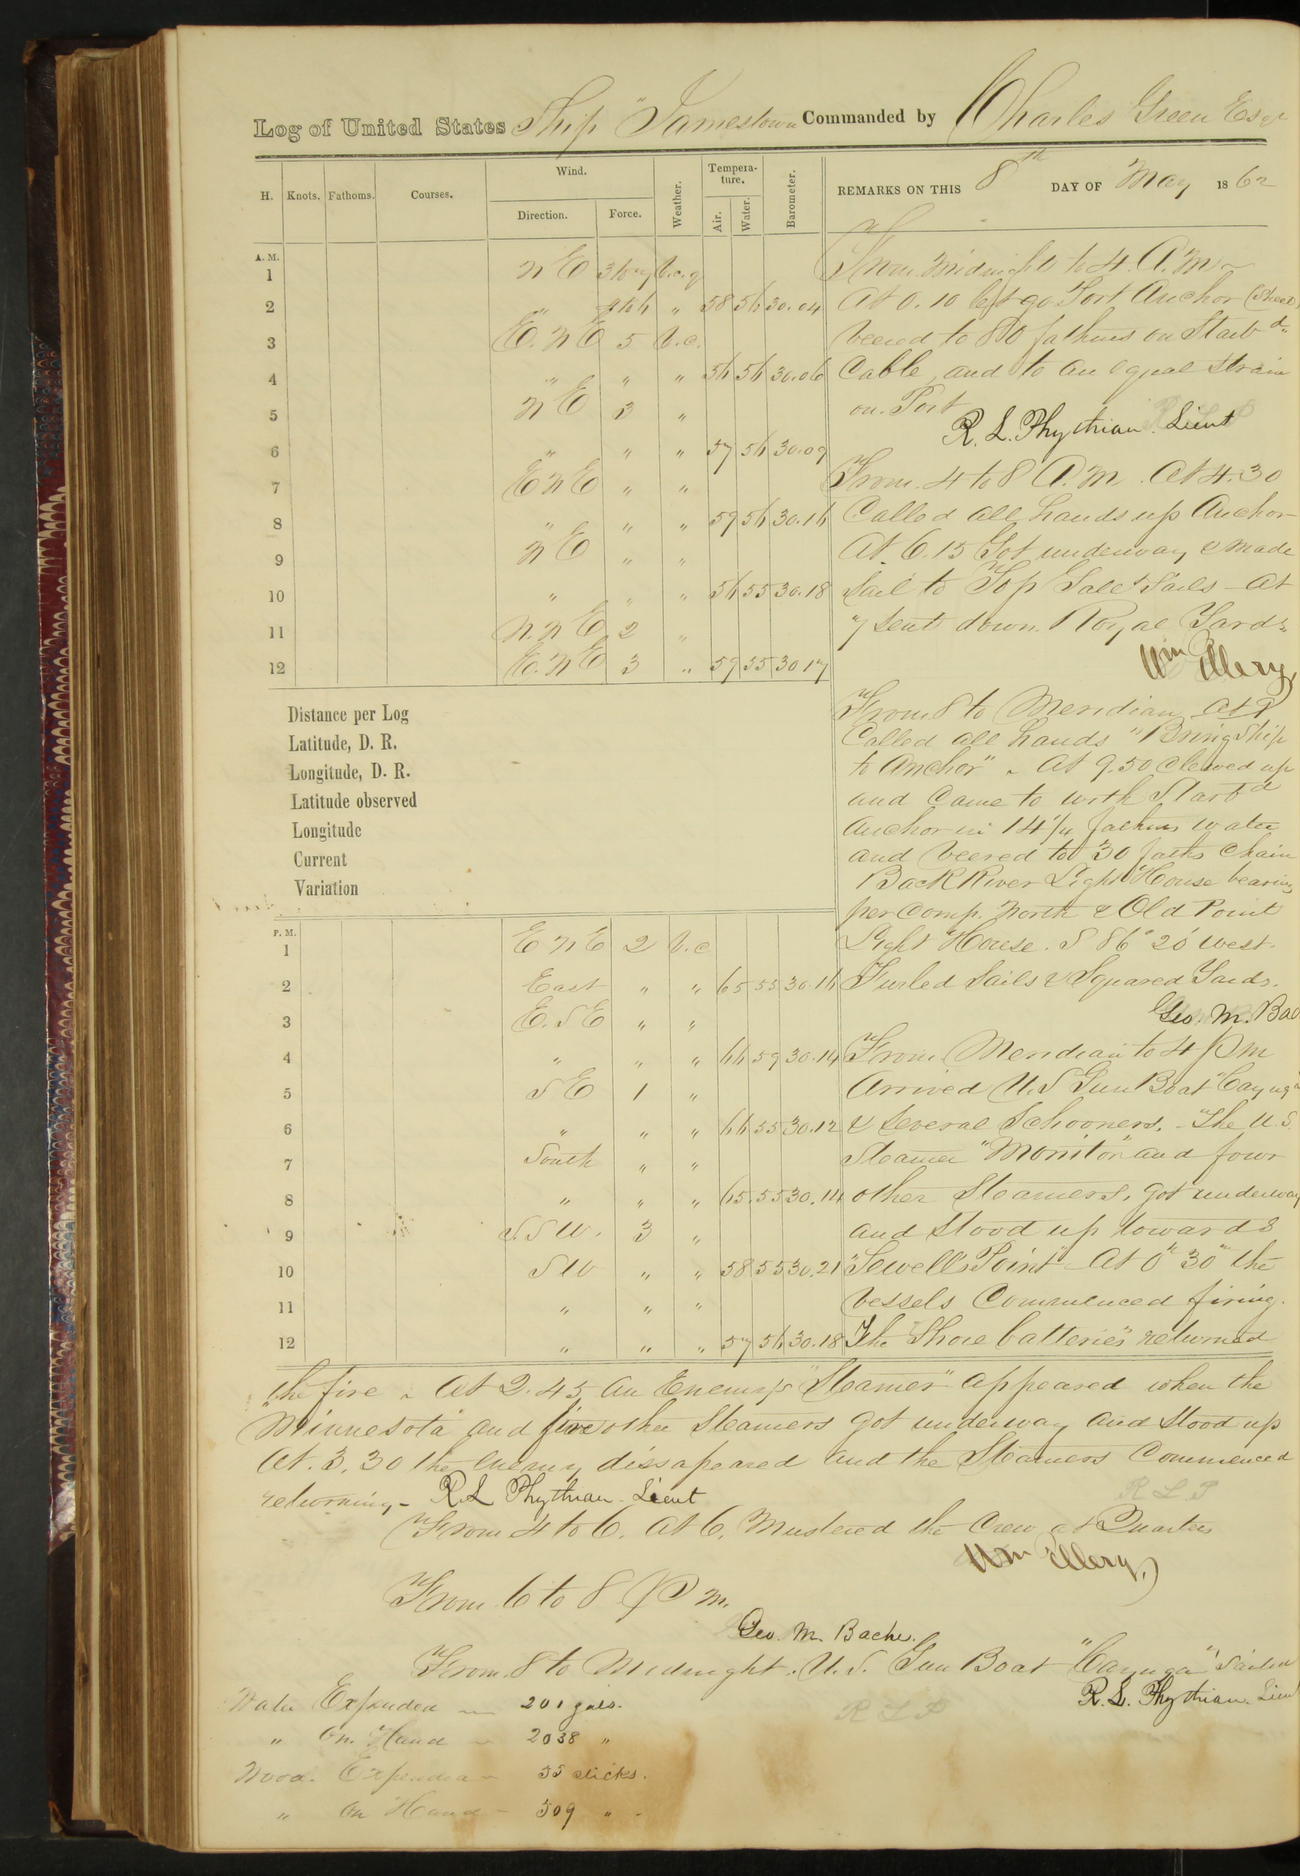 Log of United States Ship "Jamestown Commanded by Charles Green Esqr
H. Knots. Fathoms. Courses. Wind. Direction. Force. Weather. Temperature. Air. Water. Barometer. REMARKS ON THIS 8th DAY OF May 1862
A. M.
1 N E b.c.q
2 " " 58 56 30.04
3 E. N E 5 b.c.
4 " " " 56 56 30.06
5 N E 3 "
6 " " " 57 56 30.09
7 E N E " "
8 " " " 59 56 30.16
9 N E " "
10 " " " 56 55 30.18
11 N. N E 2 "
12 E. N E 3 " 59 55 30 17
From Midnight to 4 A. M.
At 0.10 let go Port Anchor (Sheet)
veered to 80 fathms on Starbd.
Cable, and to an equal strain
on Port
R. L. Phythian Lieut
From 4 to 8 A. M. At 4.30
Called all hands up Anchor
At 6.15 Got underway & made
Sail to Top Gallt Sails - At
7 sent down Royal Yards
Wm Ellery
From 8 to Meridian At 9
Called all hands "Bring Ship
to Anchor" - At 9.50 Clewed up
and Came to with Starbd
Anchor in 14 1/4 fathms water
and veered to 30 faths Chain
Back River Light House bearing
per comp. North & Old Point
Light House. S 86° 20' West.
Furled Sails & Squared Yards.
Geo. M. Bac
Distance per Log
Latitude, D. R.
Longitude, D. R.
Latitude observed
Longitude
Current
Variation
P. M.
1 E N E 2 b.c
2 East " " 65 55 30.16
3 E. S E " "
4 " " " 66 59 30.14
5 S E 1 "
6 " " " 66 55 30.12
7 South " "
8 " " " 65 55 30.14
9 S. S W. 3 "
10 S W " " 58 55 30.21
11 " " "
12 " " " 57 56 30.18
From Meridian to 4 P M
Arrived U. S Gun Boat "Cayuga"
& several Schooners. - The U. S.
Steamer "Monitor" and four
other Steamers, got underway
and stood up towards
"Sewell's Point" - At 0h 30m the
vessels Commenced firing.
The Shore batteries returned
the fire - At 2.45 An Enemy's "Steamer" appeared when the
"Minnesota" and five other Steamers got underway and stood up
At. 3.30 the enemy dissapeared and the Steamers Commenced
returning - R. L Phythian Lieut
R L P
From 4 to 6. At 6. Mustered the Crew at Quarters
Wm Ellery,
From 6 to 8 P M.
Geo. M. Bache.
From 8 to Midnight. U. S. Gun Boat "Cayuga" Sailed
R. L. Phythian Lieut
R L P
Water Expended 201 galls.
" On Hand 2038 "
Wood. Expended 55 sticks.
" On Hand - 509 " -